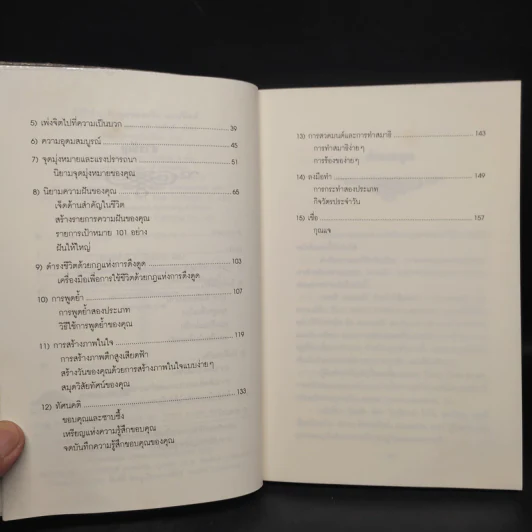 5) เพ่งจิตไปที่ความเป็นบวก ........ 39
6) ความอุดมสมบูรณ์ ........ 45
7) จุดมุ่งหมายและแรงปรารถนา ........ 51
นิยามจุดมุ่งหมายของคุณ
8) นิยามความฝันของคุณ ........ 65
เจ็ดด้านสำคัญในชีวิต
สร้างรายการความฝันของคุณ
รายการเป้าหมาย 101 อย่าง
ฝันให้ใหญ่
9) ดำรงชีวิตด้วยกฎแห่งการดึงดูด ........ 103
เครื่องมือเพื่อการใช้ชีวิตด้วยกฎแห่งการดึงดูด
10) การพูดย้ำ ........ 107
การพูดย้ำสองประเภท
วิธีใช้การพูดย้ำของคุณ
11) การสร้างภาพในใจ ........ 119
การสร้างภาพตึกสูงเสียดฟ้า
สร้างวันของคุณด้วยการสร้างภาพในใจแบบง่ายๆ
สมุดวิสัยทัศน์ของคุณ
12) ทัศนคติ ........ 133
ขอบคุณและซาบซึ้ง
เหรียญแห่งความรู้สึกขอบคุณ
จดบันทึกความรู้สึกขอบคุณของคุณ
13) การสวดมนต์และการทำสมาธิ ........ 143
การทำสมาธิง่ายๆ
การร้องของ่ายๆ
14) ลงมือทำ ........ 149
การกระทำสองประเภท
กิจวัตรประจำวัน
15) เชื่อ ........ 157
กุญแจ